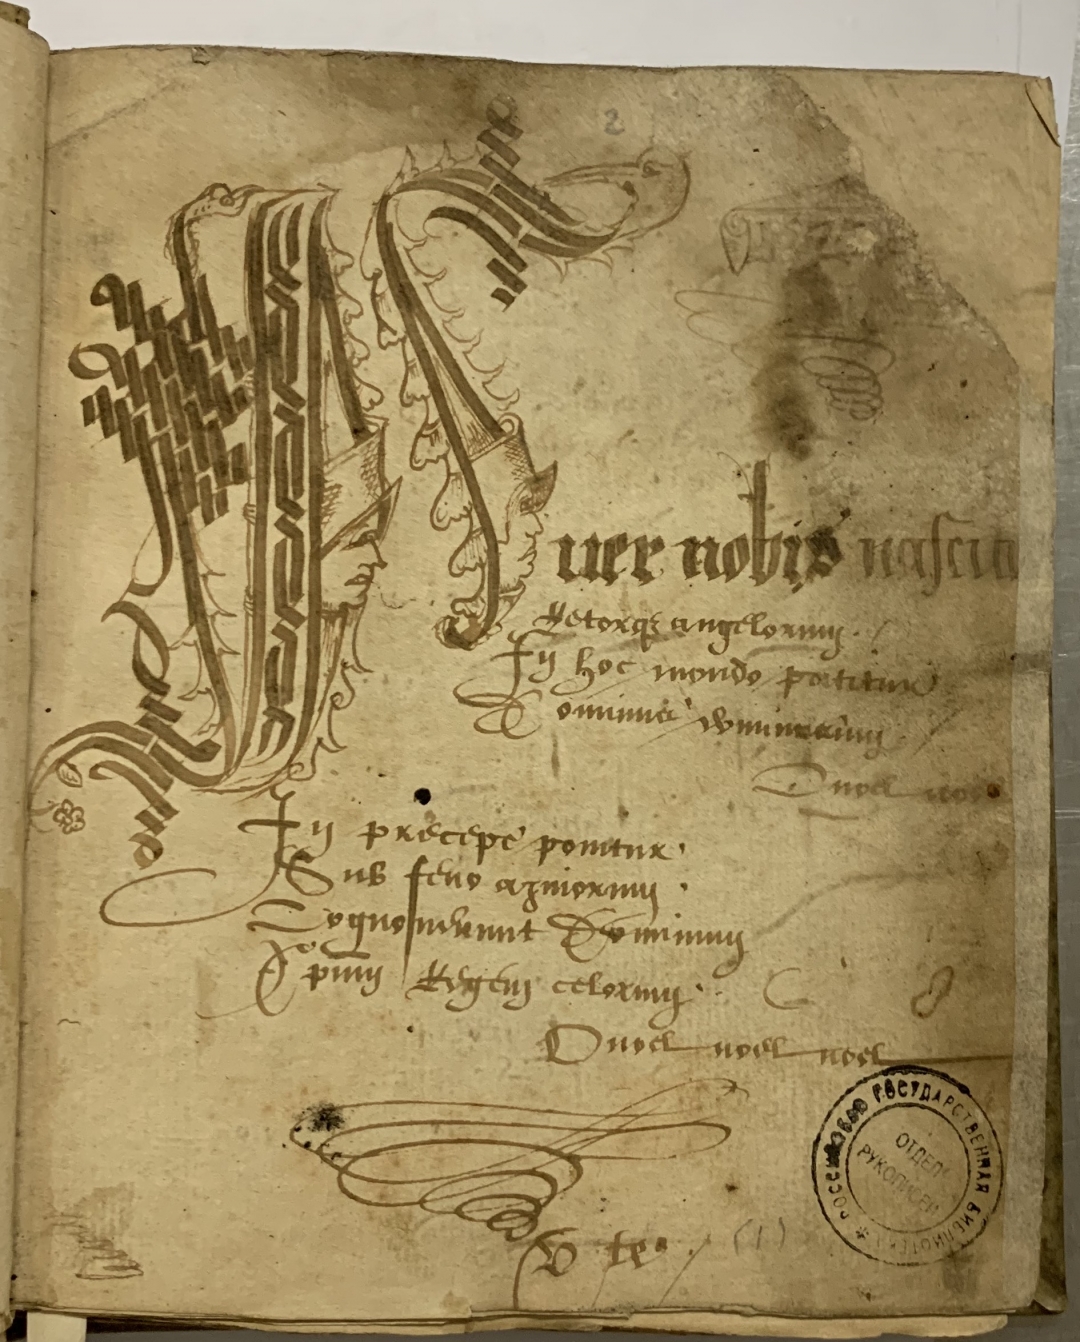 2
Puer nobis nascit
Retorqz angelorum.
In hoc mondo patitur
Dominus dominantium
O noel noel
In precepe ponitur.
Sub feno azinorum.
Cognoscverunt Dominum
Xpum Regem celorum.
O noel noel noel
(1)
РОССИЙСКАЯ ГОСУДАРСТВЕННАЯ БИБЛИОТЕКА *
ОТДЕЛ
РУКОПИСЕЙ